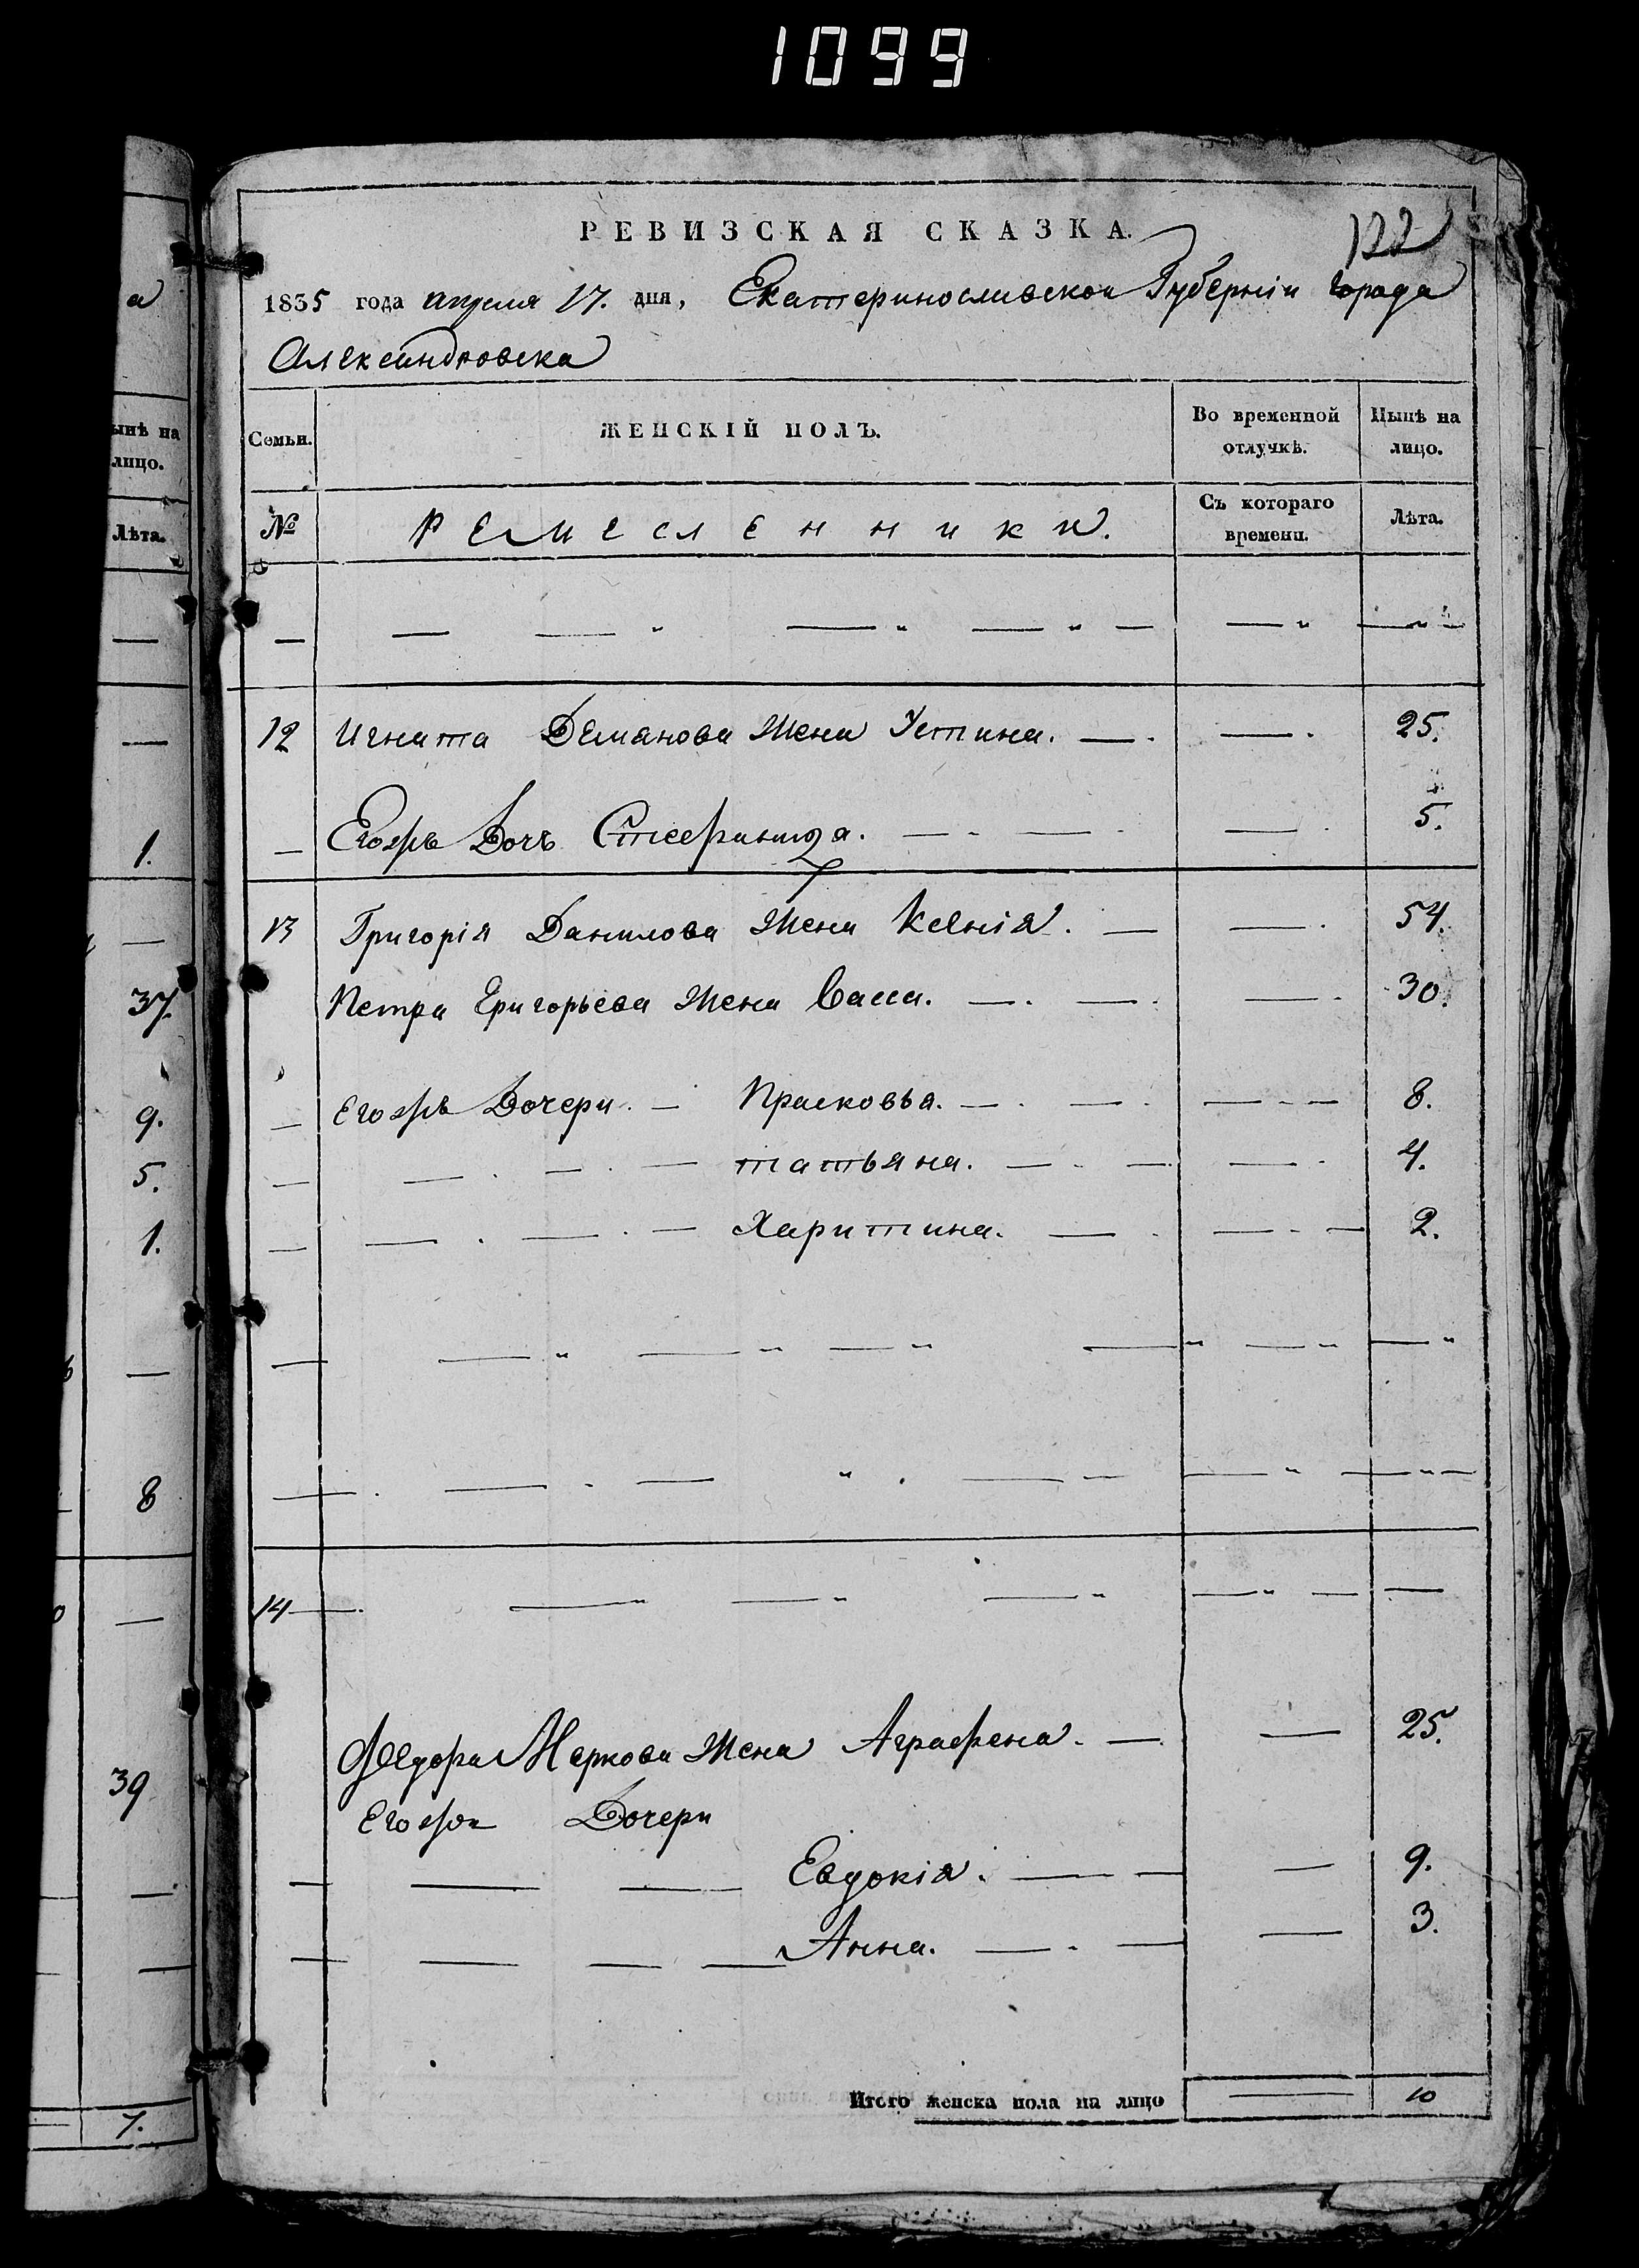 1099
РЕВИЗСКАЯ СКАЗКА.
122
1835 года апреля 17. дня, Екатеринославской Губерніи города
Александровска
Семьи.
ЖЕНСКІЙ ПОЛЪ.
Во временной
отлучкѣ.
Нынѣ на
лицо.
№
Ремесленники.
Съ котораго
времени.
Лѣта.
12 Игната Демянова жена Устина. 25.
Дочь 5.
13 Григорія Данилова жена Ксенія. 54.
Петра Григорьева жена Васса. 30.
Дочери. Прасковья. 8.
татьяна. 4.
Харитина. 2.
14
Федора Маркова жена Аграфена. 25.
Дочери
Евдокія. 9.
Анна. 3.
Итого женска пола на лицо 10
а
ынѣ на
лицо.
Лѣта.
1.
37.
9.
5.
1.
8
39
7.